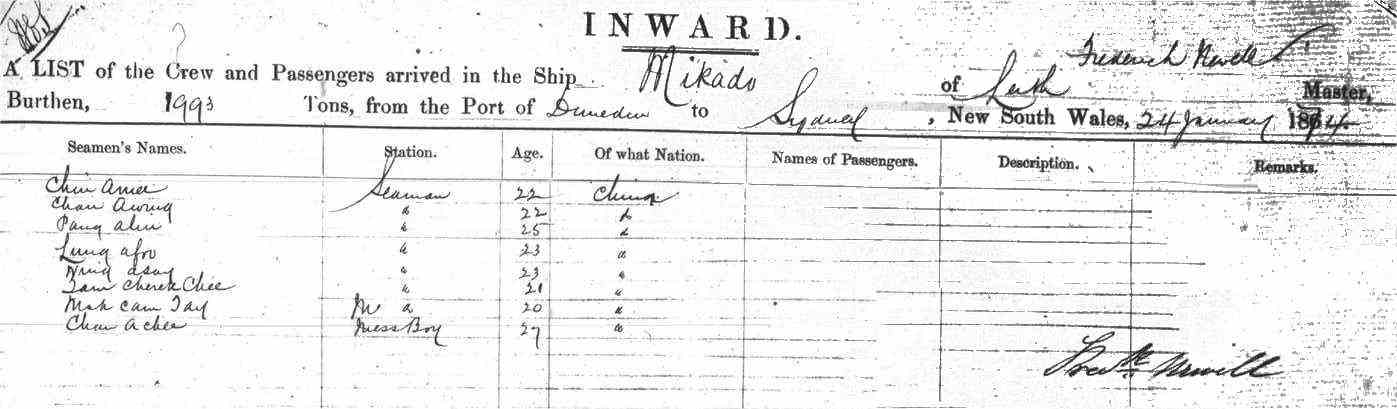 INWARD.
A LIST of the Crew and Passengers arrived in the Ship Mikado of Leith Frederick Newell Master,
Burthen, 1993 Tons, from the Port of Dunedin to Sydney, New South Wales, 24 January 1874.
Seamen's Names. Station. Age. Of what Nation. Names of Passengers. Description. Remarks.
Chin Amee Seaman 22 China
Chan Awing " 22 "
Pang alin " 25 "
Lung afoo " 23 "
asay " 23 "
Tam Cherk Chee " 21 "
Mak Cam Tay M " 20 "
Chan Achee Mess Boy 27 "
Fredk Newell